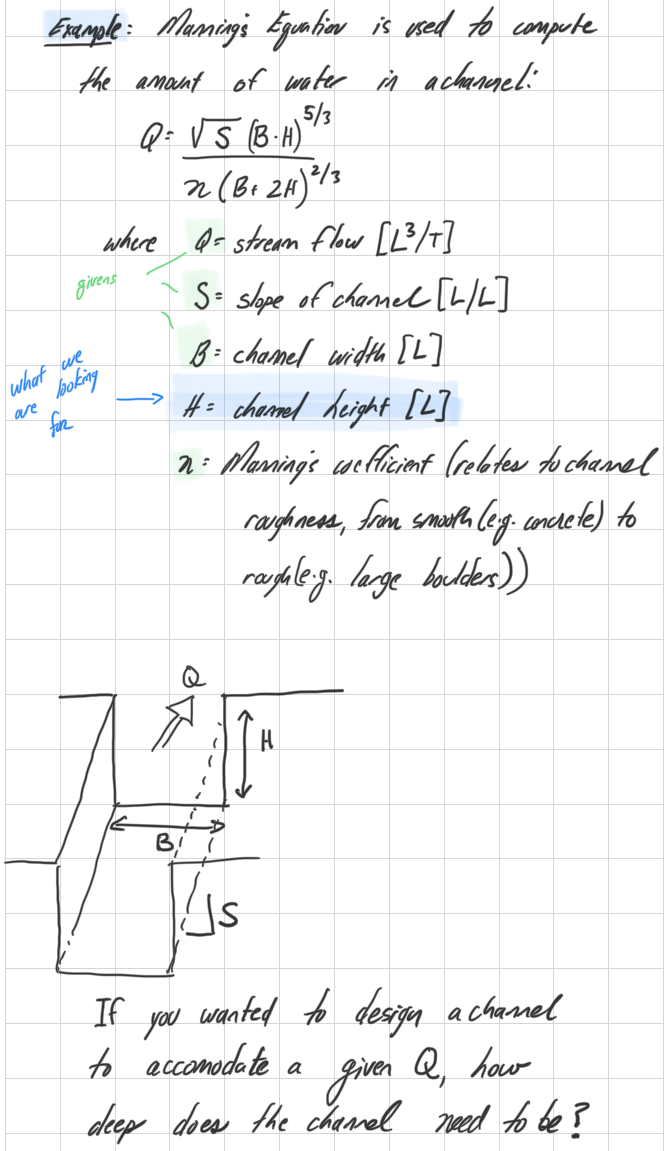 Example: Manning's Equation is used to compute
the amount of water in a channel:
Q = √S (B·H)^5/3
n (B+2H)^2/3
where Q = stream flow [L³/T]
givens
S = slope of channel [L/L]
B = channel width [L]
what we
are looking
for
H = channel height [L]
n = Manning's coefficient (relates to channel
roughness, from smooth (e.g. concrete) to
rough (e.g. large boulders))
Q
H
B
S
If you wanted to design a channel
to accomodate a given Q, how
deep does the channel need to be?